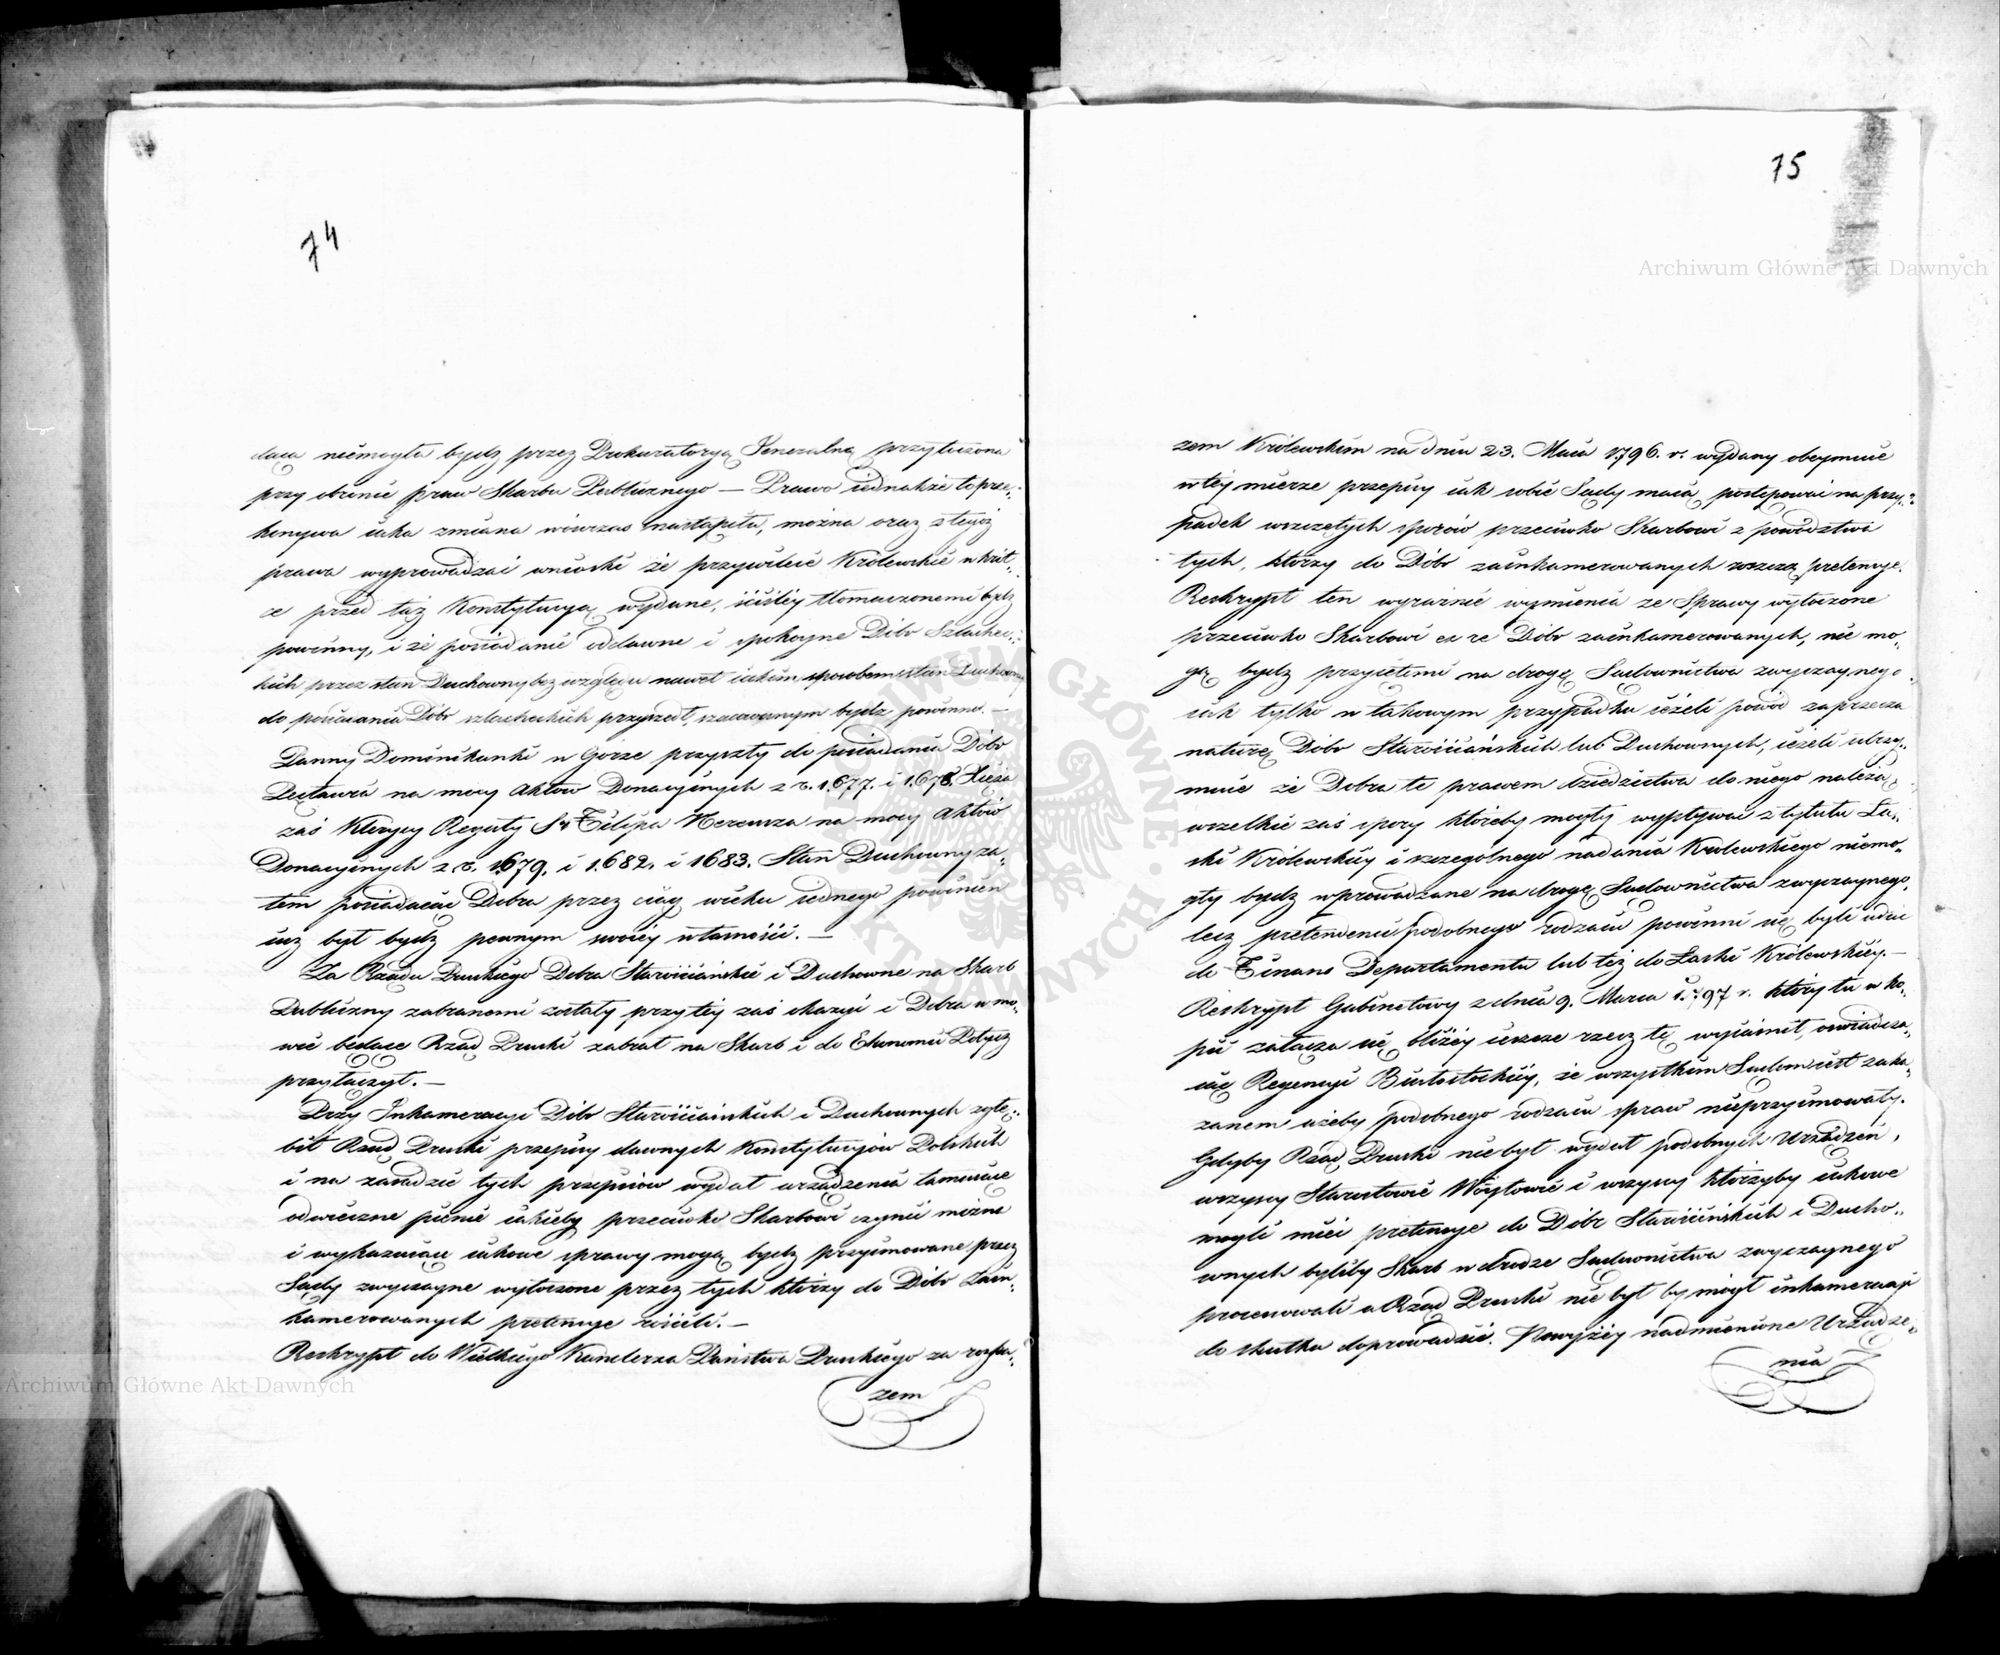 74
daca niemogła bydź przez Prokuratoryą Jeneralną przytoczona
przy obronie praw Skarbu Publicznego — Prawo iednakże to prze-
konywa iaka zmiana wówczas nastąpiła, można oraz z tegoż
prawa wyprowadzać wnioski że przywileie Królewskie w krót-
ce przed taż Konstytucyą wydane, iściśley tłomaczonemi bydź
powinny, i że posiadanie oddawne i spokoyne Dóbr Szlachec-
kich przez stan Duchowny bez względu nawet iakim sposobem stan Duchowny
do posiadania Dóbr szlacheckich przyszedł, szanownym bydź powinno. —
Panny Dominikanki w Górze przyszły do posiadania Dóbr
Pęcławia na mocy Aktów Donacyinych z r. 1677. i 1678. Xięża
zaś Klerycy Reguły Sgo Filipa Nereusza na mocy Aktów
Donacyinych z r. 1679. i 1682. i 1683. Stan Duchowny za-
tem posiadaiąc Dobra przez ciąg wieku iednego powinien
iuż był bydź pewnym swoiey własności. —
Za Rządu Pruskiego Dobra Starościńskie i Duchowne na Skarb
Publiczny zabranemi zostały przy tey zaś okazyi i Dobra w mo-
wie będące Rząd Pruski zabrał na Skarb i do Ekonomii Potycz
przyłączył. —
Przy Inkameracyi Dóbr Starościńskich i Duchownych zgłę-
bił Rząd Pruski przepisy dawnych Konstytucyiów Polskich
i na zasadzie tych przepisów wydał urządzenia tamuiące
odwieczne pienie iakieby przeciwko Skarbowi czynić można
i wykazuiące iakowe sprawy mogą bydź przyimowane przez
Sądy zwyczayne wytoczone przez tych którzy do Dóbr Zain-
kamerowanych pretensye rościli. —
Reskrypt do Wielkiego Kanclerza Państwa Pruskiego za rozka-
zem
75
zem Królewskim na dniu 23. Maia 1796. r. wydany obeymuie
w tey mierze przepisy iak sobie Sądy maią postępować na przy-
padek wszczętych sporów przeciwko Skarbowi z powództwa
tych, którzy do Dóbr zainkamerowanych roszczą pretensye.
Reskrypt ten wyraźnie wymienia ze Sprawy wytoczone
przeciwko Skarbowi ex re Dóbr zainkamerowanych, nie mo-
gą bydź przyiętemi na drogę Sądownictwa zwyczaynego
iak tylko w takowym przypadku ieżeli powód zaprzecza
naturę Dóbr Starościńskich lub Duchownych, ieżeli utrzy-
muie że Dobra te prawem dziedzictwa do niego należą,
wszelkie zaś spory któreby mogły wypływać z tytułu Ła-
ski Królewskiey i szczegolnego nadania Królewskiego niemo-
gły bydź wprowadzane na drogę Sądownictwa zwyczaynego,
lecz pretendenci podobnego rodzaiu powinni się byli udać
do Finans Departamentu lub też do Łaski Królewskiey. —
Reskrypt Gabinetowy z dnia 9. Marca 1797 r. który tu w ko-
pii załącza się bliżey ieszcze rzecz tę wyiaśnił, oświadcza-
iąc Regencyi Białostockiey, że wszystkim Sądom iest zaka-
zanem ażeby podobnego rodzaiu spraw nieprzyimowały.
Gdyby Rząd Pruski nie był wydał podobnych Urządzeń,
wszyscy Starostowie Wóytowie i wszyscy którzyby iakowe
mogli mieć pretensye do Dóbr Starościńskich i Ducho-
wnych byliby Skarb w drodze Sądownictwa zwyczaynego
procesowali a Rząd Pruski nie był by mógł inkameracyi
do skutku doprowadzić. Powyżey nadmienione Urządze-
nia
Archiwum Główne Akt Dawnych
Archiwum Główne Akt Dawnych
ARCHIWUM GŁÓWNE AKT DAWNYCH